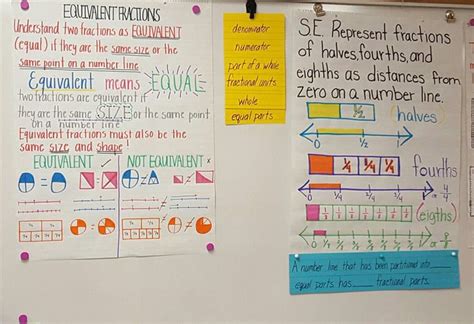 EQUIVALENT FRACTIONS
Understand two fractions as EQUIVALENT
(equal) if they are the same size or the
same point on a number line.
Equivalent means EQUAL
two fractions are equivalent if
they are the same SIZE or the same point
on a number line
Equivalent fractions must also be the
same size and shape!
EQUIVALENT ✓ NOT EQUIVALENT x
denominator
numerator
part of a whole
fractional units
whole
equal parts
S.E. Represent fractions
of halves, fourths, and
eighths as distances from
zero on a number line.
1/2 halves
0 1/2 1
1/4 1/4 1/4 fourths
0 1/4
(eigths)
0
A number line that has been partitioned into
equal parts has fractional parts.